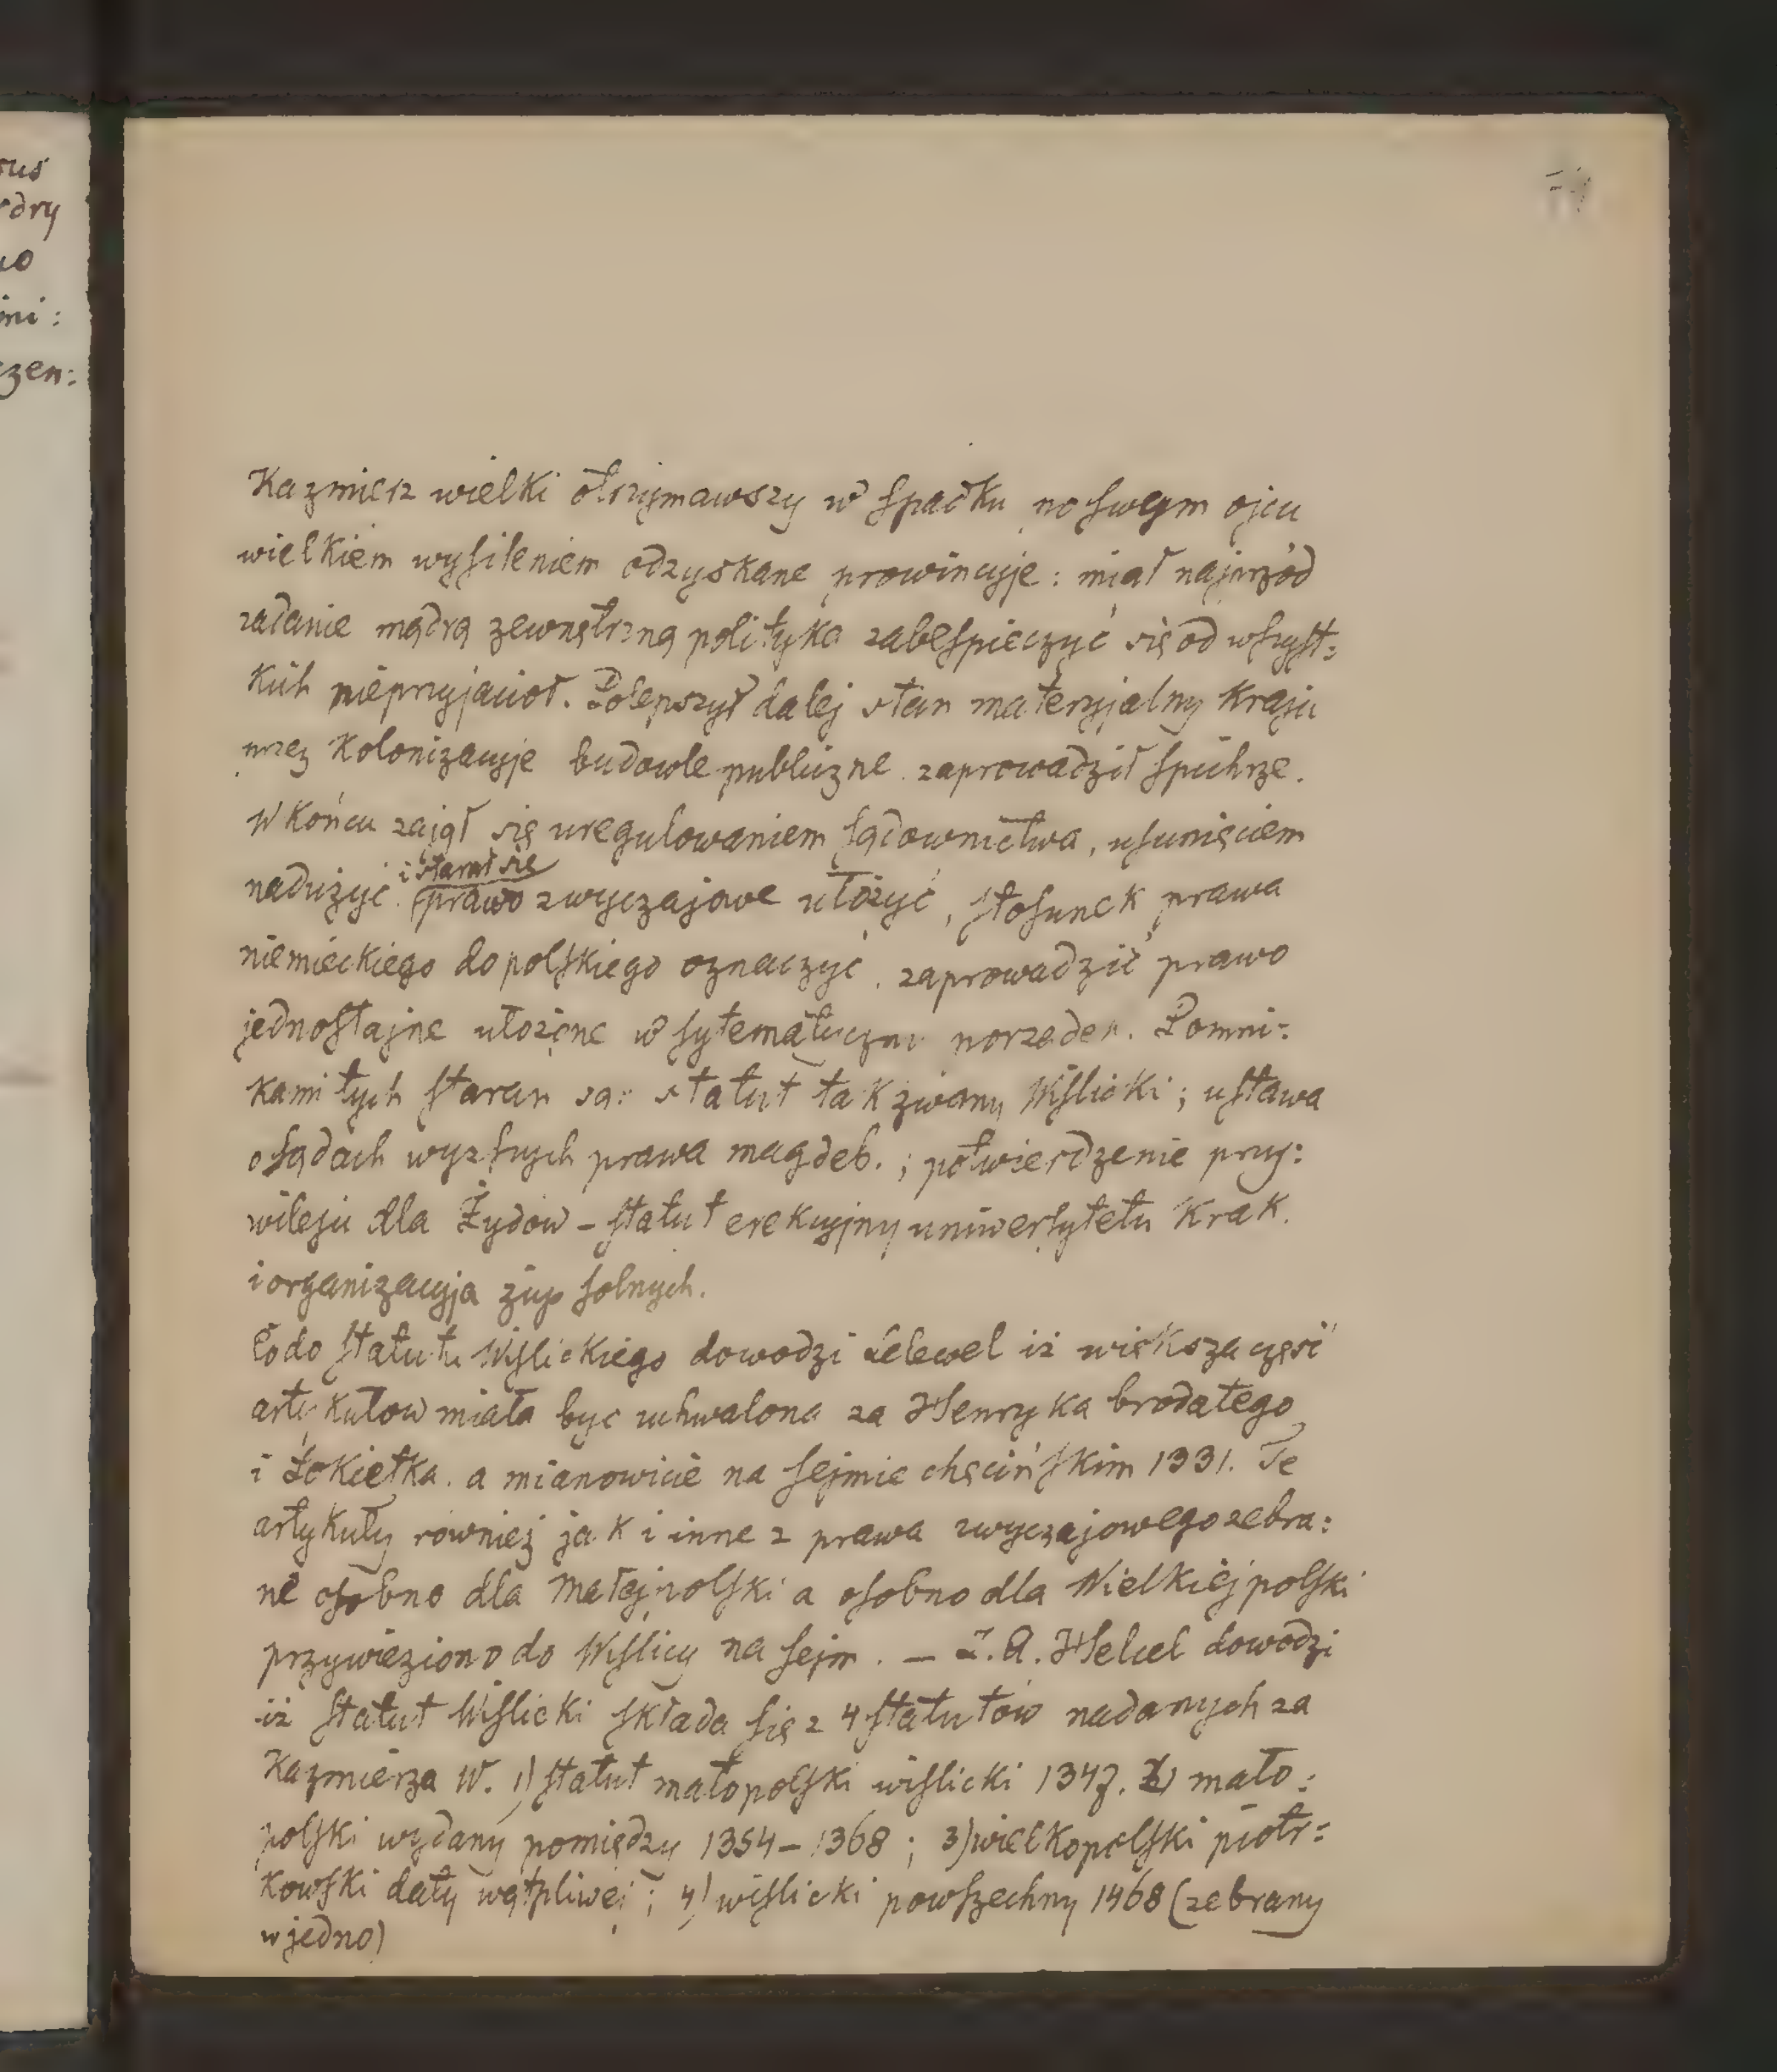 Kazmierz wielki otrzymawszy w spadku po swym ojcu
wielkiem wysileniem odzyskane prowincyje: miał najprzód
zadanie mądrą zewnętrzną polityka zabespieczyć się od wszyst:
kich nieprzyjaciol. Polepszył dalej stan materyjalny kraju
przez kolonizacyje budowle publiczne zaprowadził spichrze.
W końcu zajął się uregulowaniem sądownictwa, usunięciem
i starał się
nadużyć. prawo zwyczajowe ułożyć, stosunek prawa
niemieckiego do polskiego oznaczyć, zaprowadzić prawo
jednostajne ułożone w sytematyczny porzadek. Pomni:
kami tych staran są: statut tak zwany Wislicki; ustawa
o sądach wyzszych prawa magdeb.; potwierdzenie przy:
wileju dla Żydow – statut erekcyjny uniwersytetu Krak.
i organizacyja żup solnych.
Co do statutu Wislickiego dowodzi Lelewel iz wieksza częsć
artykułow miała byc uchwalona za Henryka brodatego
i Łokietka. a mianowicie na sejmie chęcińskim 1331. Te
artykuły rowniez jak i inne z prawa zwyczajowego zebra:
ne osobno dla Małejpolski a osobno dla Wielkiejpolski
przywieziono do Wislicy na sejm. – Z. A. Helcel dowodzi
iż statut Wislicki składa się z 4 statutów nadanych za
Kazmierza W. 1) statut małopolski wislicki 1347. 2) mało:
polski wydany pomiędzy 1354–1368; 3) wielkopolski piotr:
kowski daty wątpliwej; 4) wislicki powszechny 1468 (zebrany
w jedno)